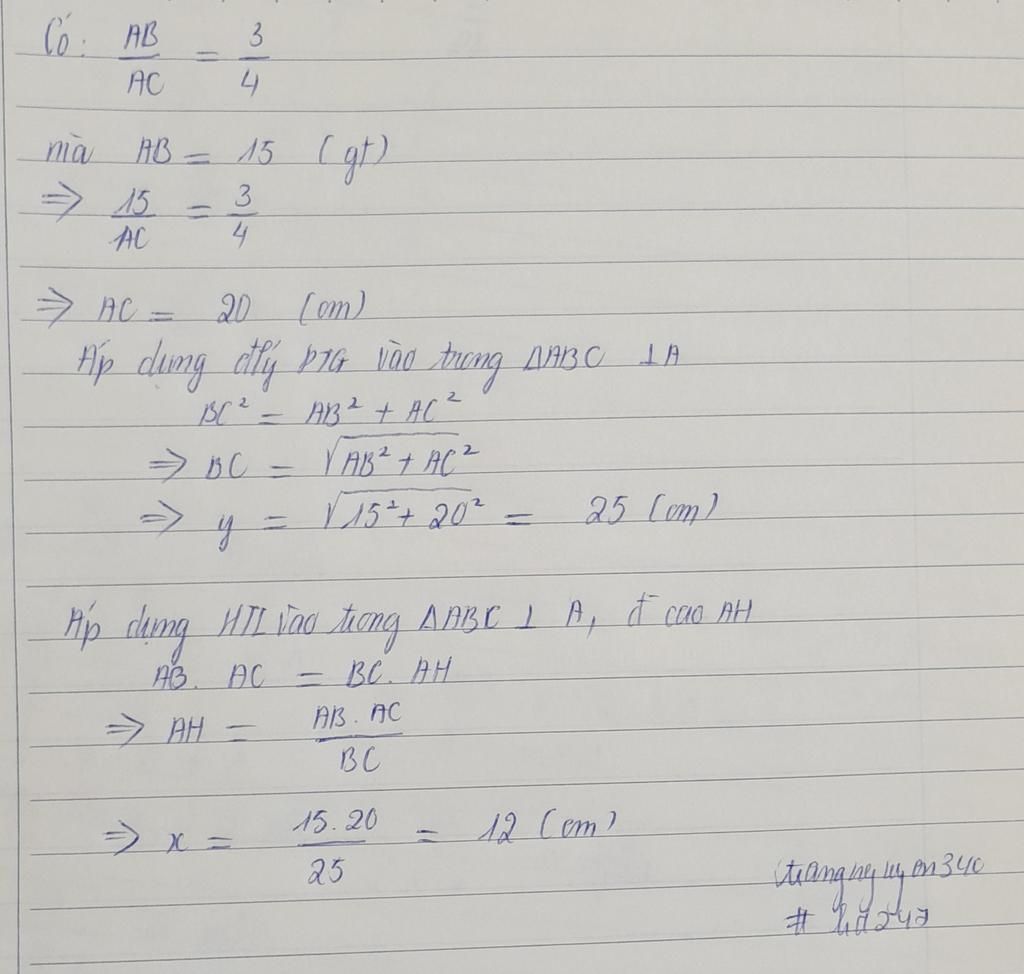 Có: AB/AC = 3/4
mà AB = 15 (gt)
⇒ 15/AC = 3/4
⇒ AC = 20 (cm)
Áp dụng đlý PTG vào trong ΔABC ⊥ A
BC² = AB² + AC²
⇒ BC = √(AB² + AC²)
⇒ y = √(15² + 20²) = 25 (cm)
Áp dụng HTL vào trong ΔABC ⊥ A, đ cao AH
AB. AC = BC. AH
⇒ AH = AB . AC / BC
⇒ x = 15. 20 / 25 = 12 (cm)